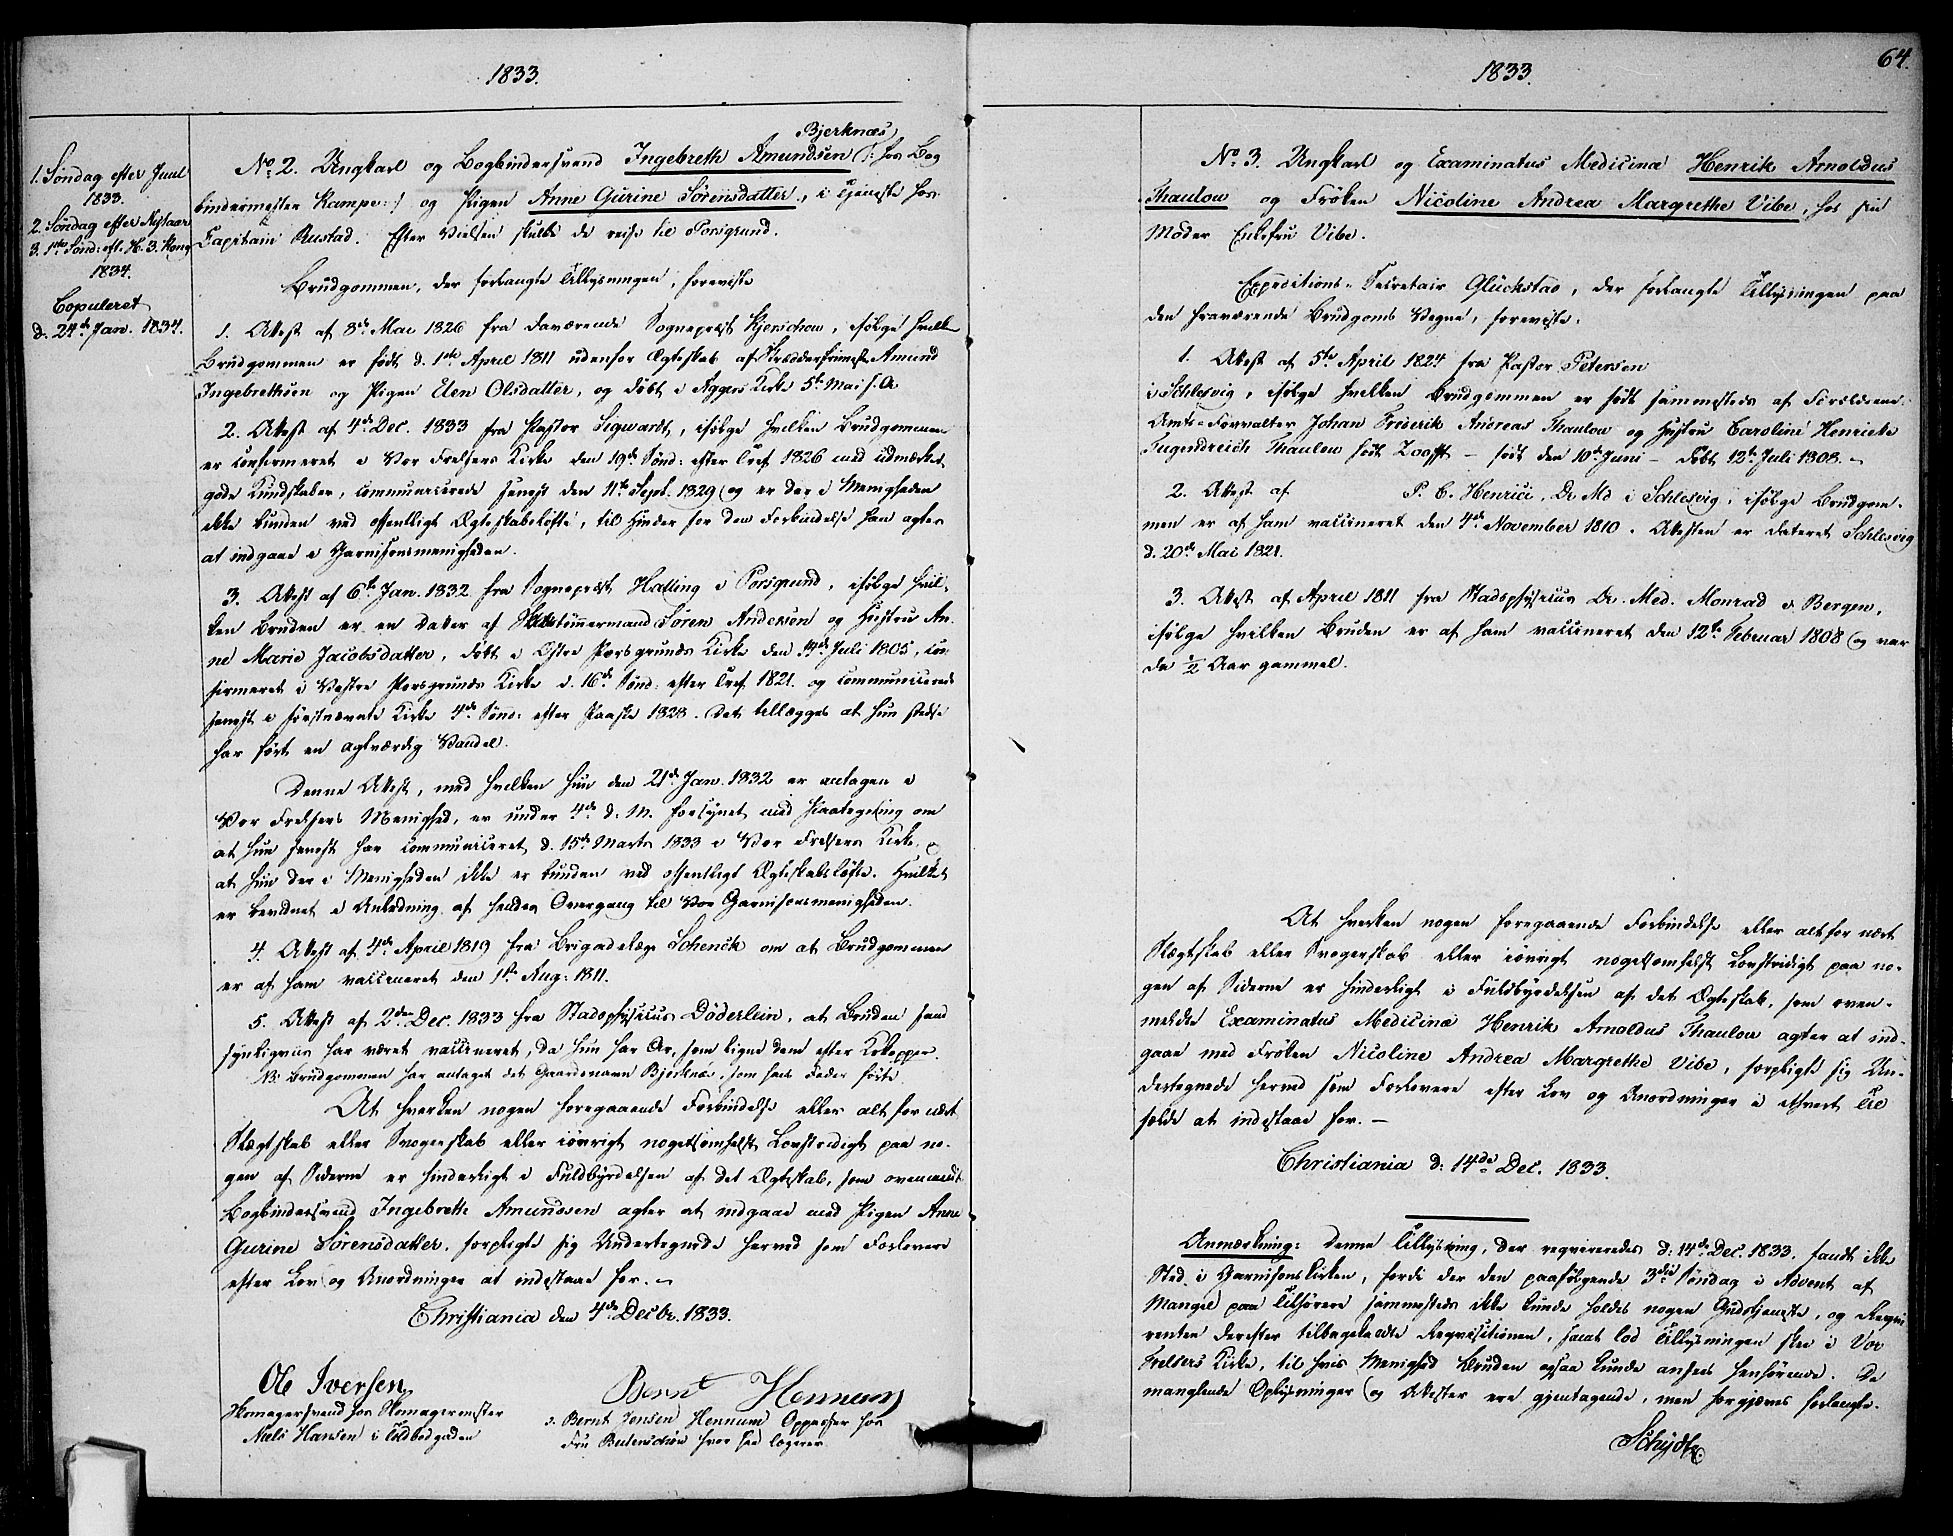 1833.
1. Søndag efter Juul
1833.
2. Søndag efter Nytaar
3. 1ste Sønd: eft. H. 3. Kong.
1834.
Copuleret
d. 24de Jan. 1834.
Bjerknæs
No. 2. Ungkarl og Bogbindersvend Ingebreth Amundsen (: hos Bog
bindermester Kampe :) og Pigen Anne Gurine Sørensdatter, i Tjeneste hos
Capitain Rustad. Efter Vielsen skulle de reise til Porsgrund.
Brudgommen, der forlangte Tillysningen, foreviste
1. Attest af 8de Mai 1826 fra daværende Sognepræst Kjerschow, ifølge hvilken
Brudgommen er født d. 1ste April 1811 udenfor Ægteskab af Amund
Ingebrethsen og Pigen Elen Olsdatter, og døbt i Aggers Kirke 5te Mai s. A.
2. Attest af 4de Dec. 1833 fra Pastor Sigwardt, ifølge hvilken Brudgommen
er confirmeret i Vor Frelsers Kirke den 19de Sønd: efter Tref. 1826 med udmærket
gode Kundskaber, communicerede senest den 11te Sept. 1829 og er der i Menigheden
ikke bunden ved offentligt Ægteskabsløfte, til Hinder for den Forbindelse han agter
at indgaae i Garnisonsmenigheden.
3. Attest af 6te Jan. 1832 fra Sognepræst Halling i Porsgrund, ifølge hvil-
ken Bruden er en Datter af Skibstømmermand Søren Andersen og Hustru An-
ne Marie Jacobsdatter, døbt i Østre Porsgrunds Kirke den Juli 1805, con-
firmeret i Vestre Porsgrunds Kirke d. 16de Sønd: efter Tref. 1821. og communicerede
senest i førstnævnte Kirke 4de Sønd: efter Paaske 1828. Det tillægges at hun stedse
har ført en agtværdig Vandel.
Denne Attest, med hvilken hun den 21de Jan. 1832 er antagen i
Vor Frelsers Menighed, er under 4de d. M. forsynet med Paategning om
at hun senest har communiceret d. 15de Marts 1833 i Vor Frelsers Kirke, og
at hun der i Menigheden ikke er bunden ved offentligt Ægteskabsløfte. Hvilket
er bevidnet i Anledning af hendes Overgang til Vor Garnisonsmenigheden.
4. Attest af 4de April 1819 fra Brigadelæge Schenck om at Brudgommen
er af ham vaccineret den 1ste Aug: 1811.
5. Attest af 2den Dec. 1833 fra Stadsphysicus Døderlein, at Bruden sand
synligviis har været vaccineret, da hun har Ar, som ligne dem efter Kokopper.
NB. Brudgommen har antaget det Gaardsnavn Bjerknæs, som hans Fader førte.
At hverken nogen foregaaende Forbindelse eller alt for nært
Slægtskab eller Svogerskab eller iøvrigt nogetsomhelst Lovstridigt paa no-
gen af Siderne er hinderligt i Fuldbyrdelsen af det Ægteskab, som ovenmeldt
Bogbindersvend Ingebreth Amundsen agter at indgaae med Pigen Anne
Gurine Sørensdatter, forpligte sig Undertegnede herved som Forlovere
efter Lov og Anordninger at indestaae for. –
Christiania den 4de Decbr. 1833.
Ole Iversen
Homagersvend hos Homagermester
Niels Hansen i Toldbodgaden
Bernt Hennum
Bernt Jensen Hennum Oppasser hos
Fru Butenschøn hvor han logerer
64.
1833.
No. 3. Ungkarl og Examinatus Medicinæ Henrik Arnoldus
Thaulow og Frøken Nicoline Andrea Margrethe Vibe, hos sin
Moder Enkefru Vibe.
Expeditions-Secretair Glückstad, der forlangte Tillysningen paa
den fraværende Brudgoms Vegne, foreviste:
1. Attest af 5te April 1824 fra Pastor Petersen
i Schlesvig, ifølge hvilken Brudgommen er født sammesteds af Forældrene
Amts-Forvalter Johan Friderik Andreas Thaulow og Hustru Caroline Henriette
Tugendreich Thaulow født Zoefft – født den 10de Juni – døbt 12te Juli 1808. –
2. Attest af P. C. Henrici, Dr. Md. i Schlesvig, ifølge Brudgom-
men er af ham vaccineret den 4de November 1810. Attesten er dateret Schlesvig
d. 20de Mai 1821.
3. Attest af April 1811 fra Stadsphysicus Dr. Med. Monrad i Bergen,
ifølge hvilken Bruden er af ham vaccineret den 12te Februar 1808 og var
da ½ Aar gammel.
At hverken nogen foregaaende Forbindelse eller altfor nært
Slægtskab eller Svogerskab eller iøvrigt nogetsomhelst Lovstridigt paa no-
gen af Siderne er hinderligt i Fuldbyrdelsen af det Ægteskab, som oven-
meldte Examinatus Medicinæ Henrik Arnoldus Thaulow agter at ind-
gaae med Frøken Nicoline Andrea Margrethe Vibe, forpligte sig Un-
dertegnede herved som Forlovere efter Lov og Anordninger i ethvert Til
fælde at indestaae for. –
Christiania d: 14de Dec. 1833.
Anmærkning: Denne Tillysning, der requireredes d: 14de Dec. 1833. fandt ikke
Sted i Garnisonskirken, fordi der den paafølgende 3die Søndag i Advent af
Mangel paa Tilhørere sammesteds ikke kunde holdes nogen Gudstjeneste, og Reqvi
renten derefter tilbagekaldte Reqvisitionen, samt lod Tillysningen skee i Vor
Frelsers Kirke, til hvis Menighed Bruden ogsaa kunde ansees henhørende. De
manglende Oplysninger og Attester ere gjentagende, men forgjæves forlangte.
Schydtz